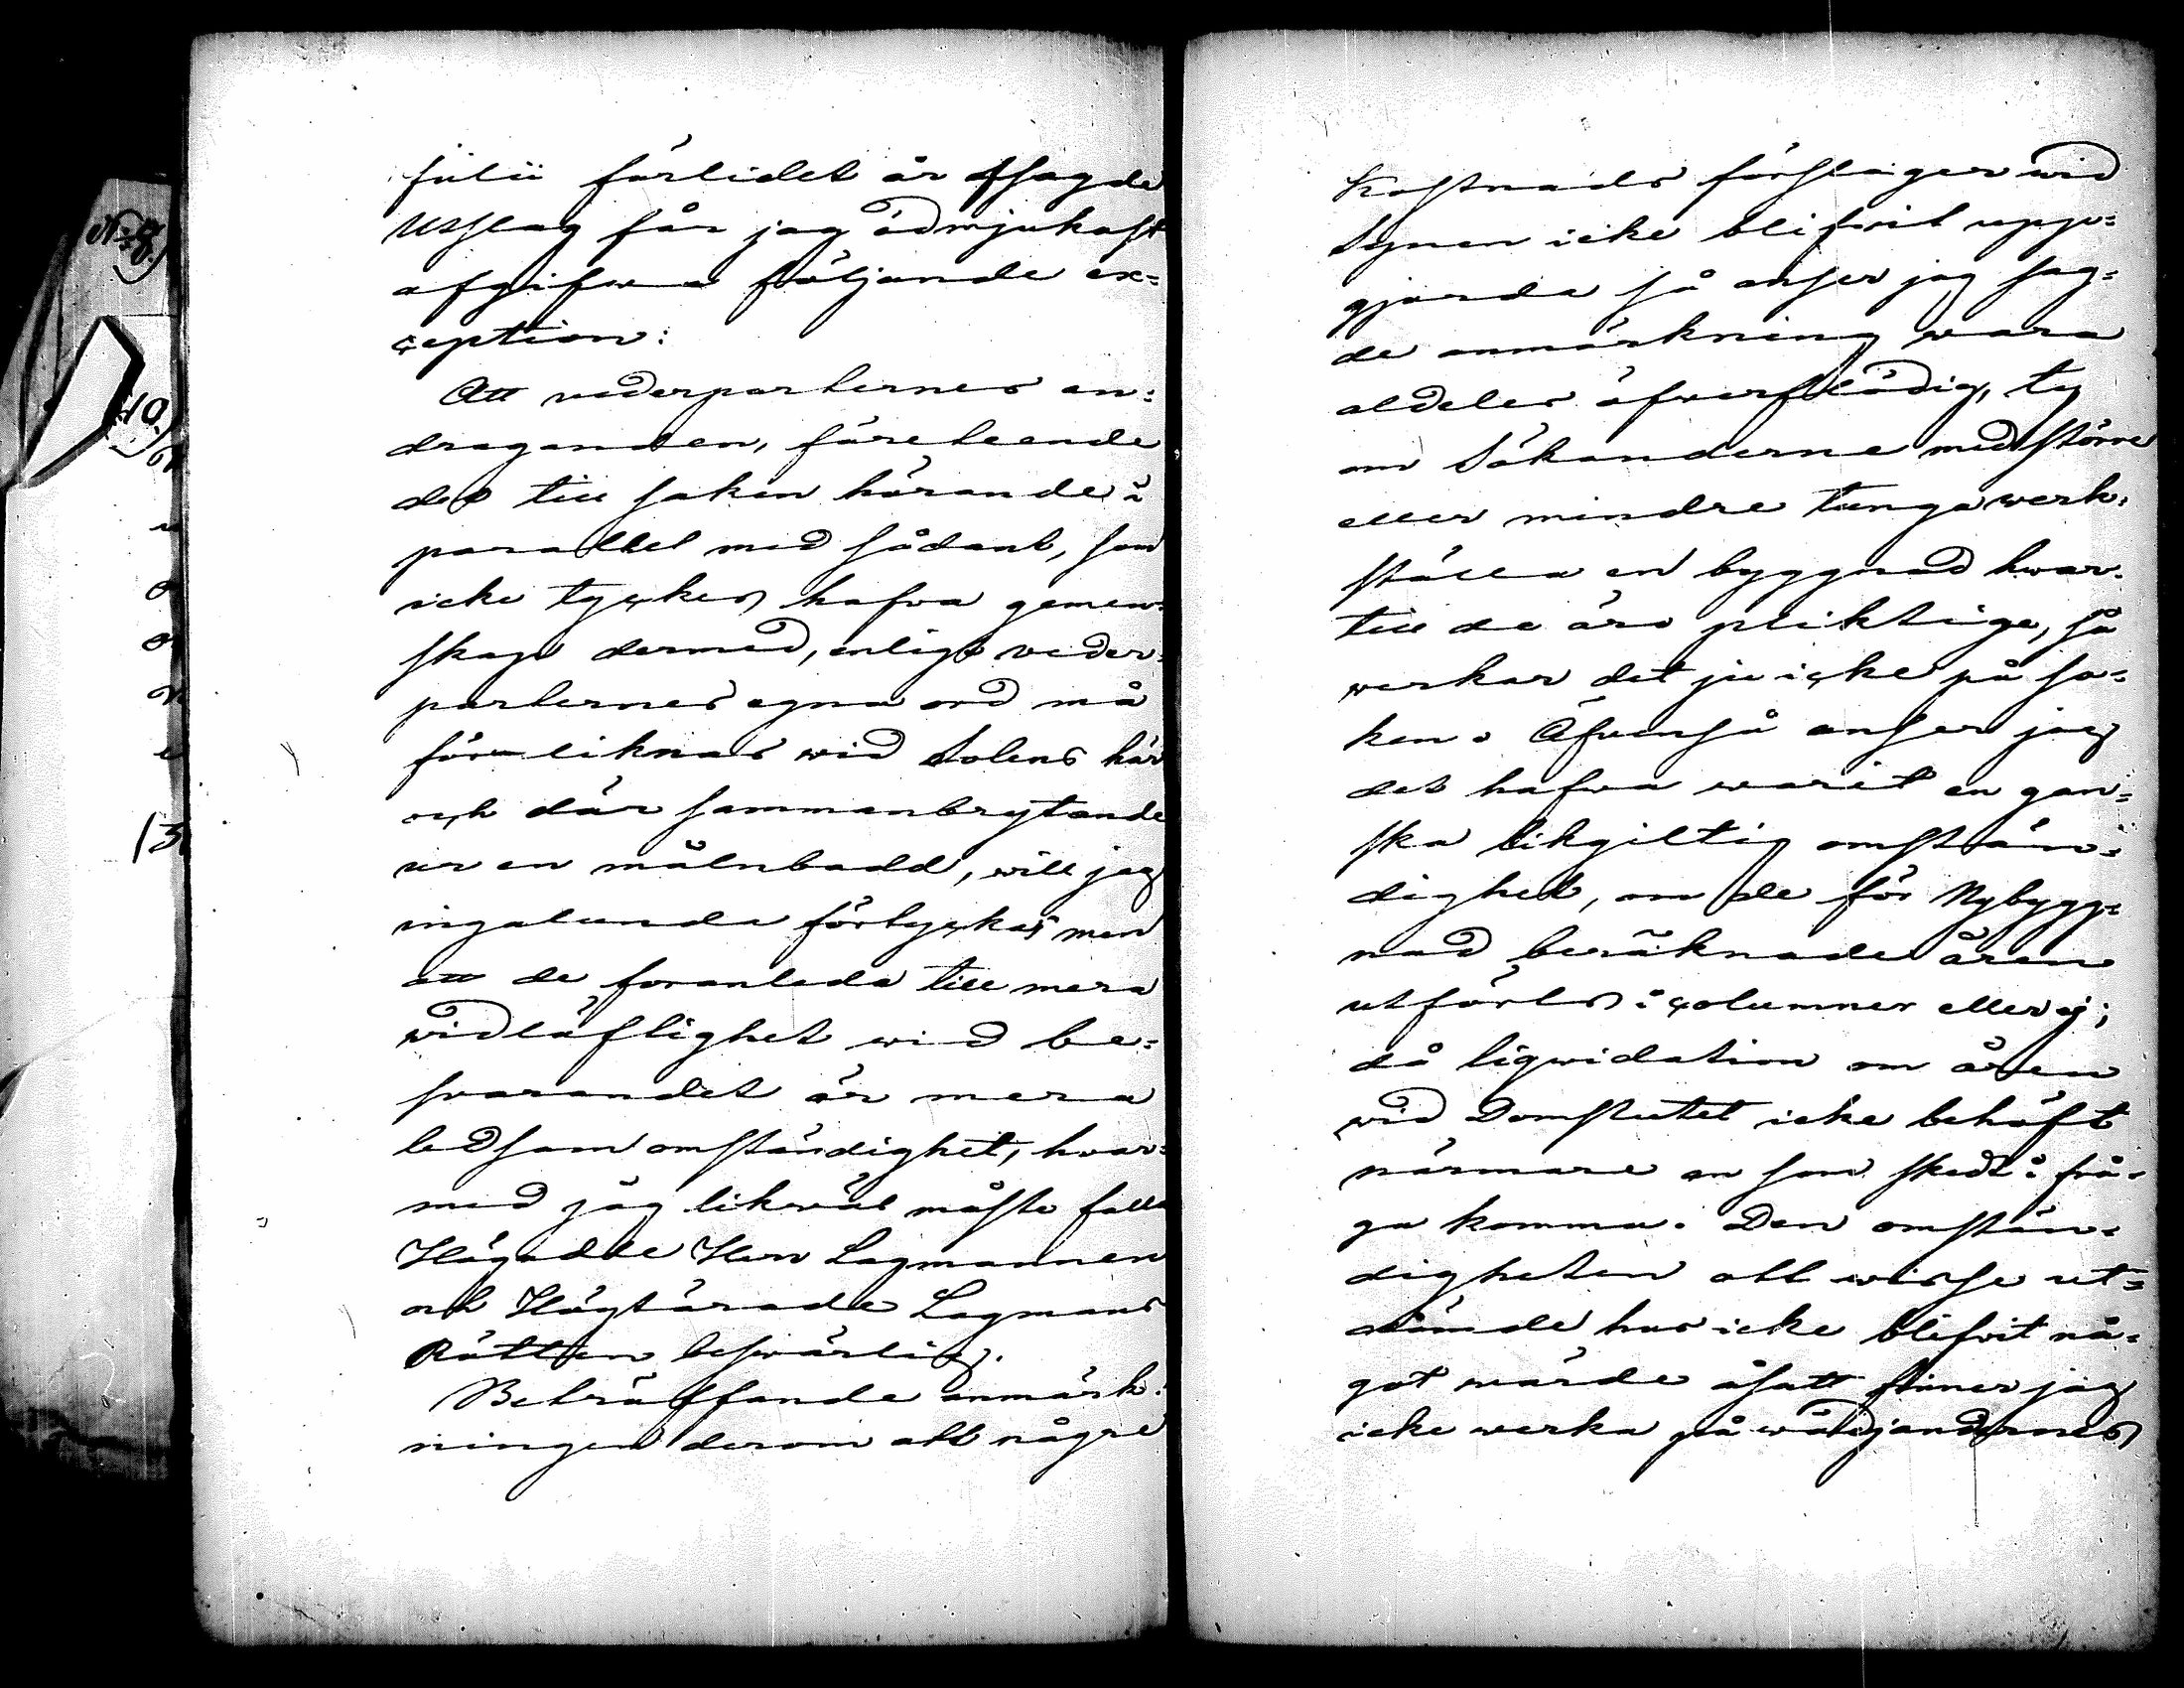 Julii förlidet år afsagde
Utslag får jag ödmjukast
afgifwa följande ex=
ception:
Att vederparternes an=
draganden, företeende
det till saken hörande i
parallel med sådant, som
icke tyckes hafva gemen=
skap dermed, enligt veder=
parternes egna ord må
förliknas wid Solens här
och där sammanbrytande
ur en mälnbädd, will jag
ingalunda förtycka; men
att de foranleda till mera
widlöftighet wid be=
svarandet är mera
ledsam omständighet, hvar=
med jag likwäl måste falla
Högädle Herr Lagmannen
och Högtärade Lagmans
Rätten beswärlig.
Beträffande anmärk=
ningen derom att någre
Kostnads förslager wid
Synen icke blifwit upp=
gjorda så anser jag sag=
de anmärkning wara
aldeles öfwerflödig, ty
om Sökanderne med större
eller mindre tunga werk=
ställa en byggnad hwar=
till de äro pliktige, så
werkar det ju icke på sa=
ken. Äfwenså anser jag
det hafwa warit en gan=
ska likgiltig omstän=
dighet, om de för Nybygg=
nad beräknade åren
utförts i columner eller ej;
då liqwidation om åren
wid Domslutet icke behöft
närmare än som skedt i frå=
ga komma. Den omstän=
digheten att wisse ut=
dömde hus icke blifvit nå=
got wärde åsatt finner jag
icke werka på wädjandernes
N:o 8.
10.